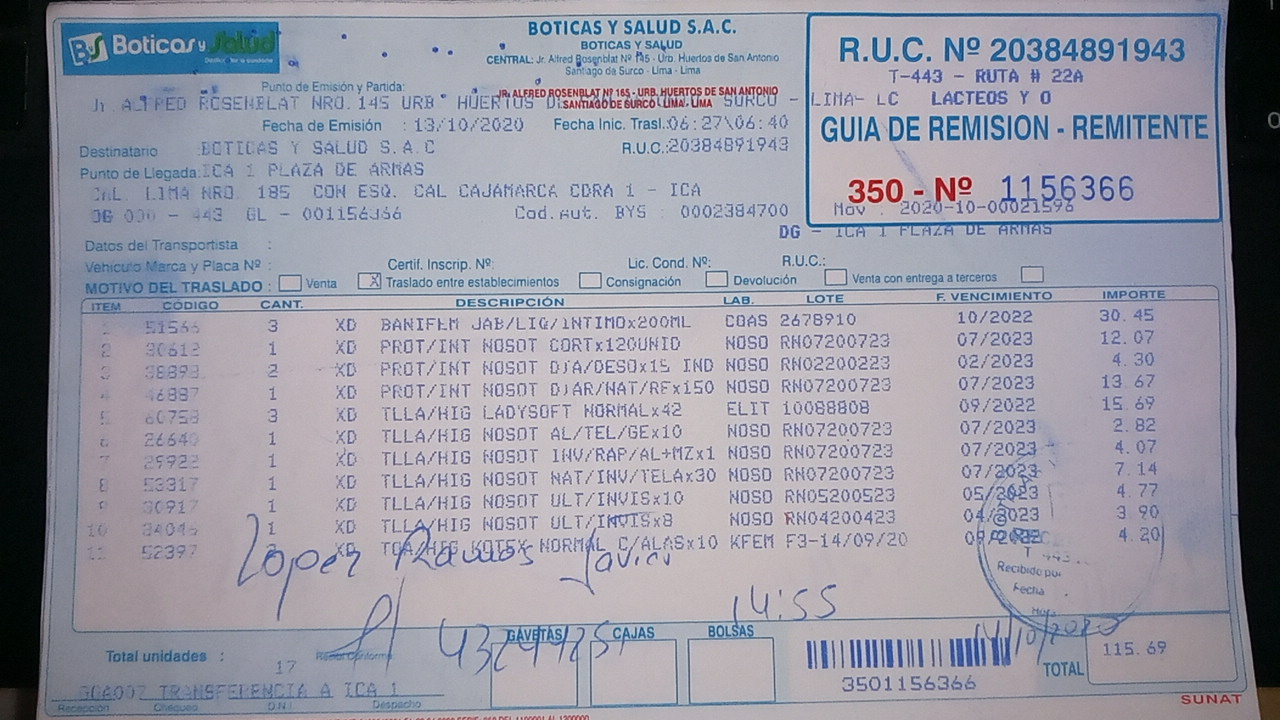 BS Boticas y Salud
BOTICAS Y SALUD S.A.C.
BOTICAS Y SALUD
CENTRAL: Jr. Alfred Rosenblat Nº 145 - Urb. Huertos de San Antonio
Santiago de Surco - Lima - Lima
R.U.C. Nº 20384891943
T-443 - RUTA # 22A
LACTEOS Y O
GUIA DE REMISION - REMITENTE
350 - Nº 1156366
Mov : 2020-10-00021596
Punto de Emisión y Partida:
Jr ALFRED ROSENBLAT NRO. 145 URB HUERTOS SURCO - LIMA- LC
JR. ALFRED ROSENBLAT Nº 165 - URB. HUERTOS DE SAN ANTONIO
SANTIAGO DE SURCO - LIMA - LIMA
Fecha de Emisión : 13/10/2020 Fecha Inic. Trasl.: 06:27\06:40
Destinatario : BOTICAS Y SALUD S.A.C R.U.C.: 20384891943
Punto de Llegada: ICA 1 PLAZA DE ARMAS
CAL. LIMA NRO. 185 CON ESQ. CAL CAJAMARCA CDRA 1 - ICA
DG 000 - 443 GL - 001156366 Cod.Aut. BYS : 0002384700
DG - ICA 1 PLAZA DE ARMAS
Datos del Transportista :
Vehículo Marca y Placa Nº : Certif. Inscrip. Nº: Lic. Cond. Nº: R.U.C.:
MOTIVO DEL TRASLADO : Venta X Traslado entre establecimientos Consignación Devolución Venta con entrega a terceros
ITEM CÓDIGO CANT. DESCRIPCIÓN LAB. LOTE F. VENCIMIENTO IMPORTE
1 51566 3 XD BANIFEM JAB/LIQ/INTIMOx200ML COAS 2678910 10/2022 30.45
2 30612 1 XD PROT/INT NOSOT CORTx120UNID NOSO RN07200723 07/2023 12.07
3 38898 2 XD PROT/INT NOSOT DIA/DESOx15 IND NOSO RN02200223 02/2023 4.30
4 46887 1 XD PROT/INT NOSOT DIAR/NAT/RFx150 NOSO RN07200723 07/2023 13.67
5 60758 3 XD TLLA/HIG LADYSOFT NORMALx42 ELIT 10088808 09/2022 15.69
6 26640 1 XD TLLA/HIG NOSOT AL/TEL/GEx10 NOSO RN07200723 07/2023 2.82
7 29922 1 XD TLLA/HIG NOSOT INV/RAP/AL+MZx1 NOSO RN07200723 07/2023 4.07
8 53317 1 XD TLLA/HIG NOSOT NAT/INV/TELAx30 NOSO RN07200723 07/2023 7.14
9 30917 1 XD TLLA/HIG NOSOT ULT/INVISx10 NOSO RN05200523 05/2023 4.77
10 34046 1 XD TLLA/HIG NOSOT ULT/INVISx8 NOSO RN04200423 04/2023 3.90
11 52397 XD TOA/HIG KOTEX NORMAL C/ALASx10 KFEM F3-14/09/20 4.20
Lopez Ramos Javier
14:55
Recibido por
Fecha
Hora
14/10/2020
Total unidades : 17
GAVETAS CAJAS BOLSAS
3501156366
TOTAL 115.69
30A007 TRANSFERENCIA A ICA 1
Recepción Chequeo D.N.I Despacho
SUNAT